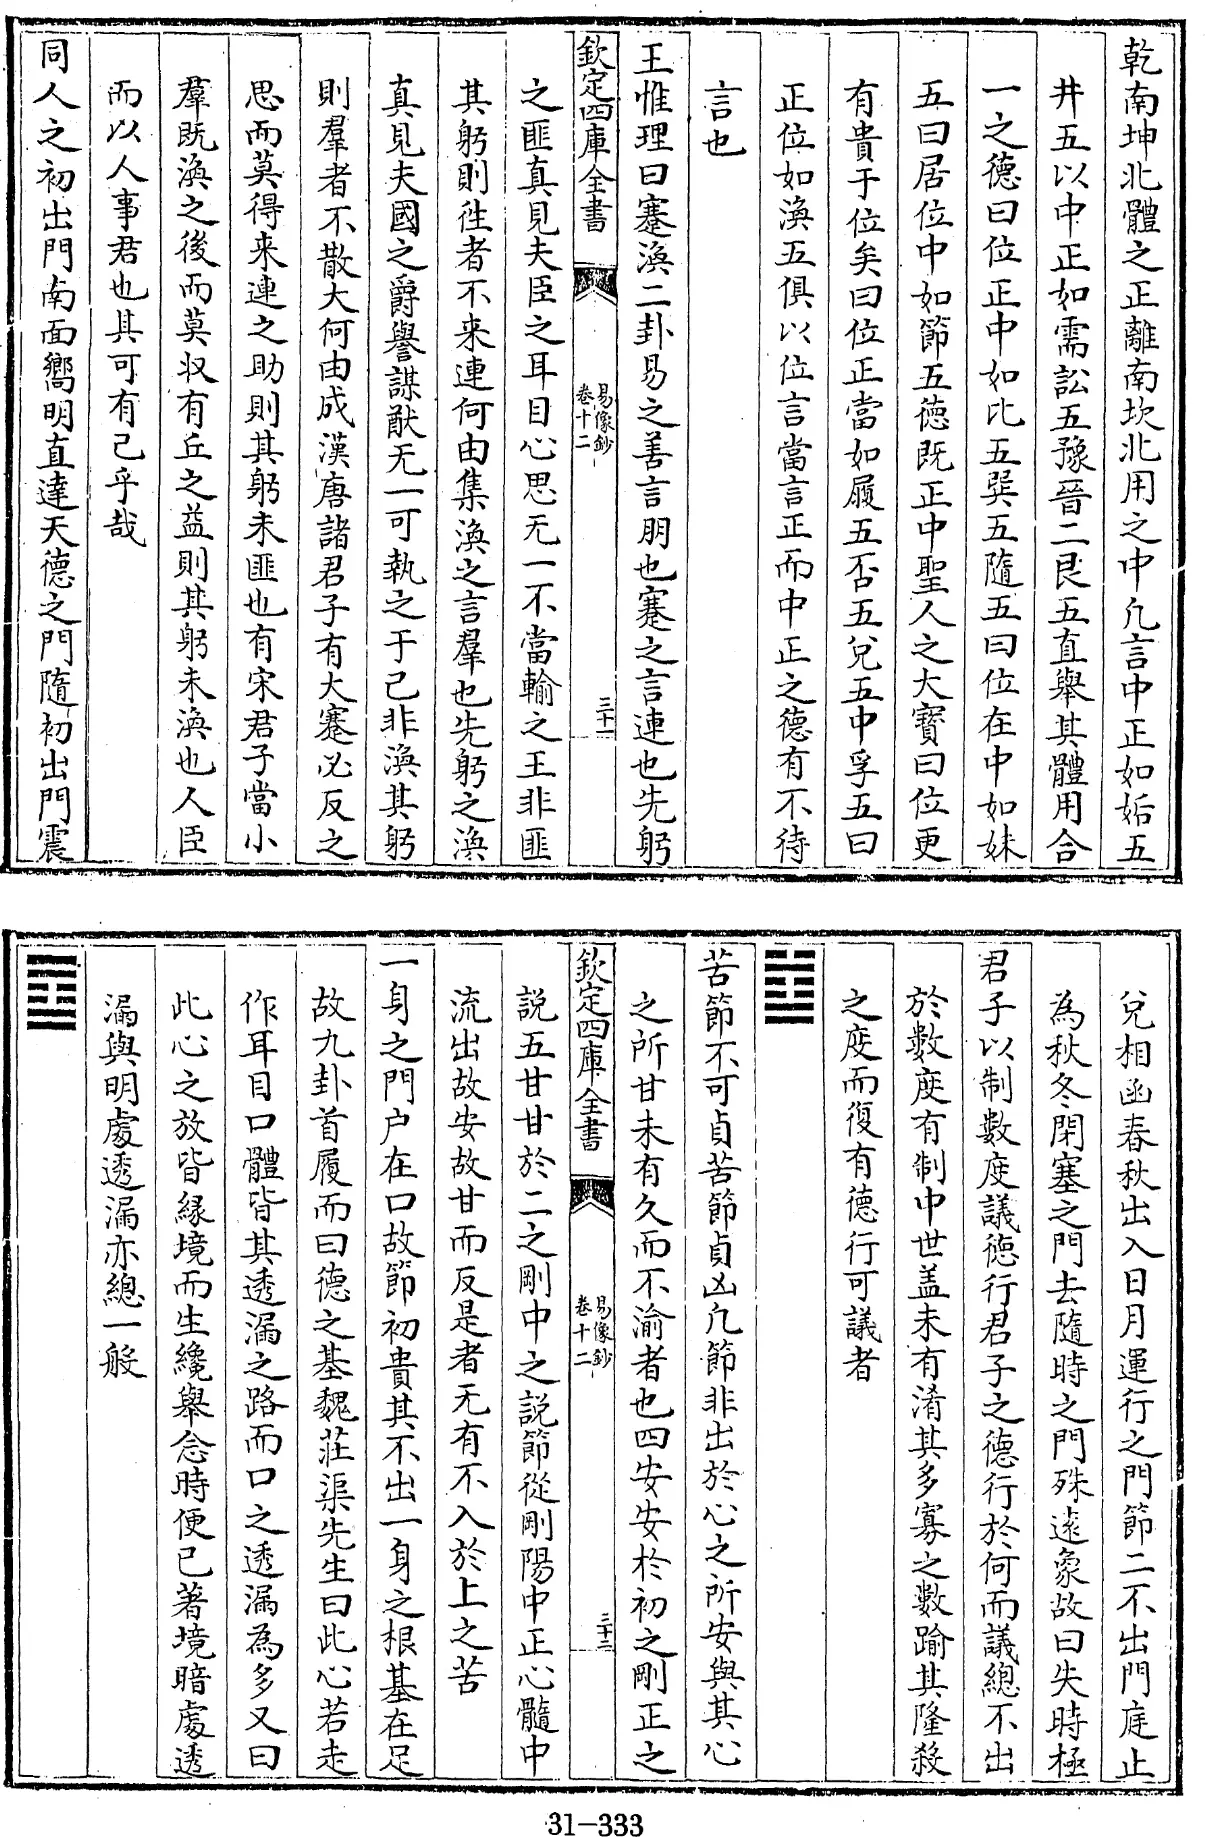 乾南坤北體之正離南坎北用之中凡言中正如姤五
井五以中正如需訟五豫晉二艮五直舉其體用合
一之德曰位正中如比五巽五隨五曰位在中如妹
五曰居位中如節五德既正中聖人之大寶曰位更
有貴于位矣曰位正當如履五否五兌五中孚五曰
正位如渙五俱以位言當言正而中正之德有不待
言也
王惟理曰蹇渙二卦易之善言朋也蹇之言連也先躬
欽定四庫全書
易像鈔
卷十二
三十一
之匪真見夫臣之耳目心思无一不當輸之王非匪
其躬則徃者不来連何由集渙之言羣也先躬之渙
真見夫國之爵譽謀猷无一可執之于己非渙其躬
則羣者不散大何由成漢唐諸君子有大蹇必反之
思而莫得来連之助則其躬未匪也有宋君子當小
羣既渙之後而莫収有丘之益則其躬未渙也人臣
而以人事君也其可有己乎哉
同人之初出門南面嚮明直達天德之門隨初出門震
兌相函春秋出入日月運行之門節二不出門庭止
為秋冬閉塞之門去隨時之門殊逺象故曰失時極
君子以制數度議德行君子之德行於何而議總不出
於數度有制中世盖未有淆其多寡之數踰其隆殺
之度而復有德行可議者
䷻
苦節不可貞苦節貞凶凡節非出於心之所安與其心
之所甘未有久而不渝者也四安安於初之剛正之
欽定四庫全書
易像鈔
卷十二
三十二
說五甘甘於二之剛中之說節從剛陽中正心髓中
流出故安故甘而反是者无有不入於上之苦
一身之門户在口故節初貴其不出一身之根基在足
故九卦首履而曰德之基魏莊渠先生曰此心若走
作耳目口體皆其透漏之路而口之透漏為多又曰
此心之放皆緣境而生纔舉念時便已著境暗處透
漏與明處透漏亦總一般
䷼
31-333